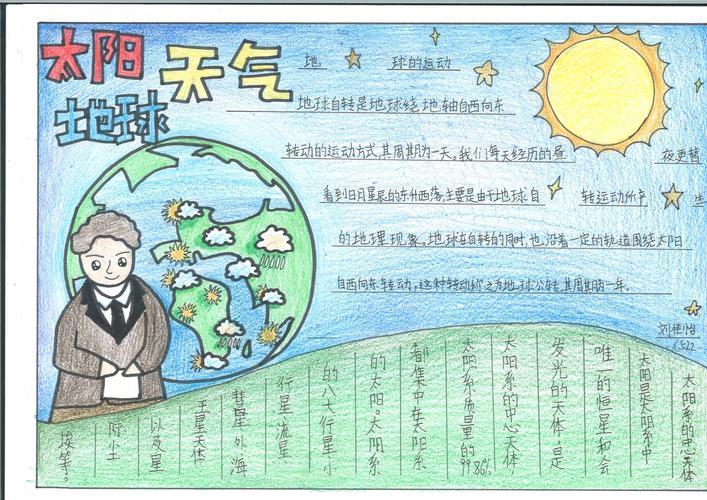 太阳 天气
地球
地 球的运动
地球自转是地球绕地轴自西向东
转动的运动方式,其周期为一天。我们每天经历的昼 夜更替
看到日月星辰的东升西落,主要是由于地球自 转运动所产 生
的地理现象。地球在自转的同时,也沿着一定的轨道围绕太阳
自西向东转动,这种转动称之为地球公转,其周期为一年.
刘佳怡
太阳系的中心天体
太阳是太阳系中
唯一的恒星和会
发光的天体,是
太阳系的中心天体,
太阳系质量的99.86%
都集中在太阳系
的太阳。太阳系
的八大行星小
行星流星
彗星外海
王星天体
以及星
际尘
埃等。